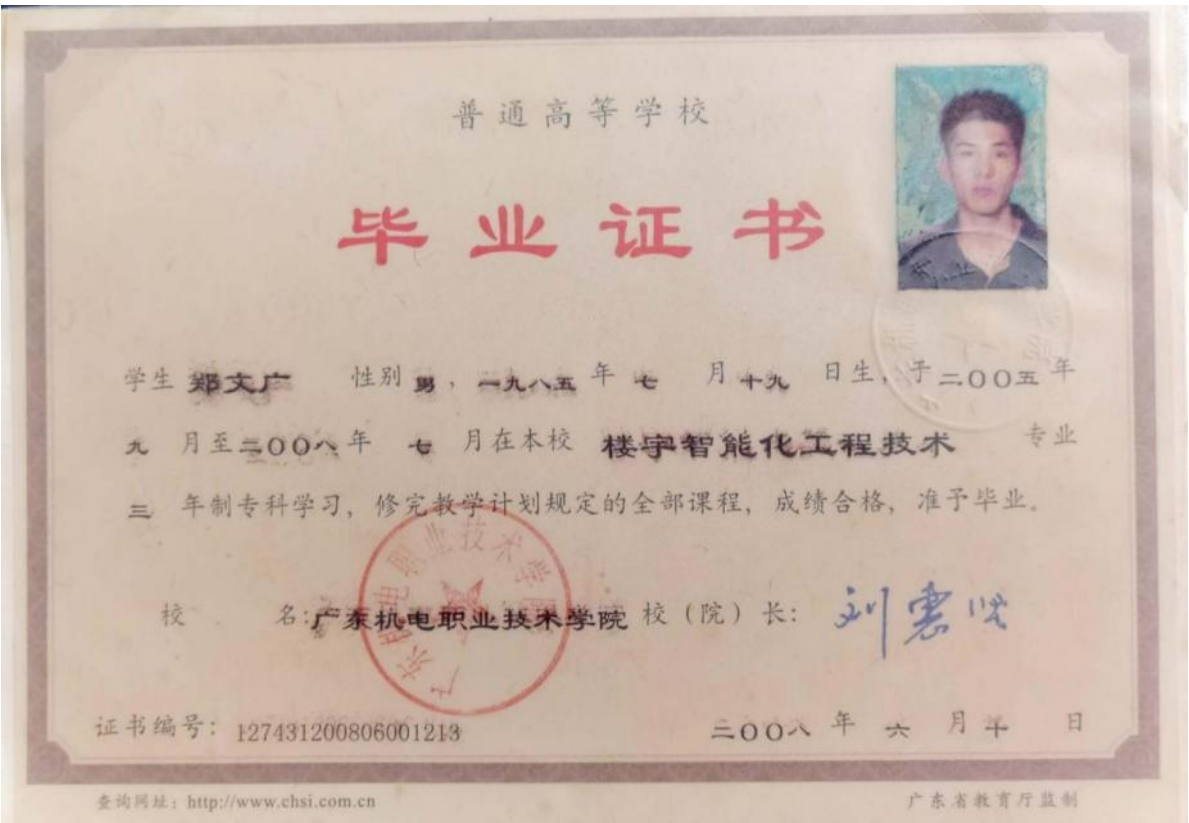 普通高等学校
毕业证书
学生 郑文广 性别 男，一九八五 年 七 月 十九 日生，于二00五年
九 月至二00八年 七 月在本校 楼宇智能化工程技术 专业
三 年制专科学习，修完教学计划规定的全部课程，成绩合格，准予毕业。
广东机电职业技术学院
校 名:广东机电职业技术学院 校（院）长:
证书编号: 127431200806001213
二00八 年 六 月 十 日
查询网址: http://www.chsi.com.cn
广东省教育厅监制